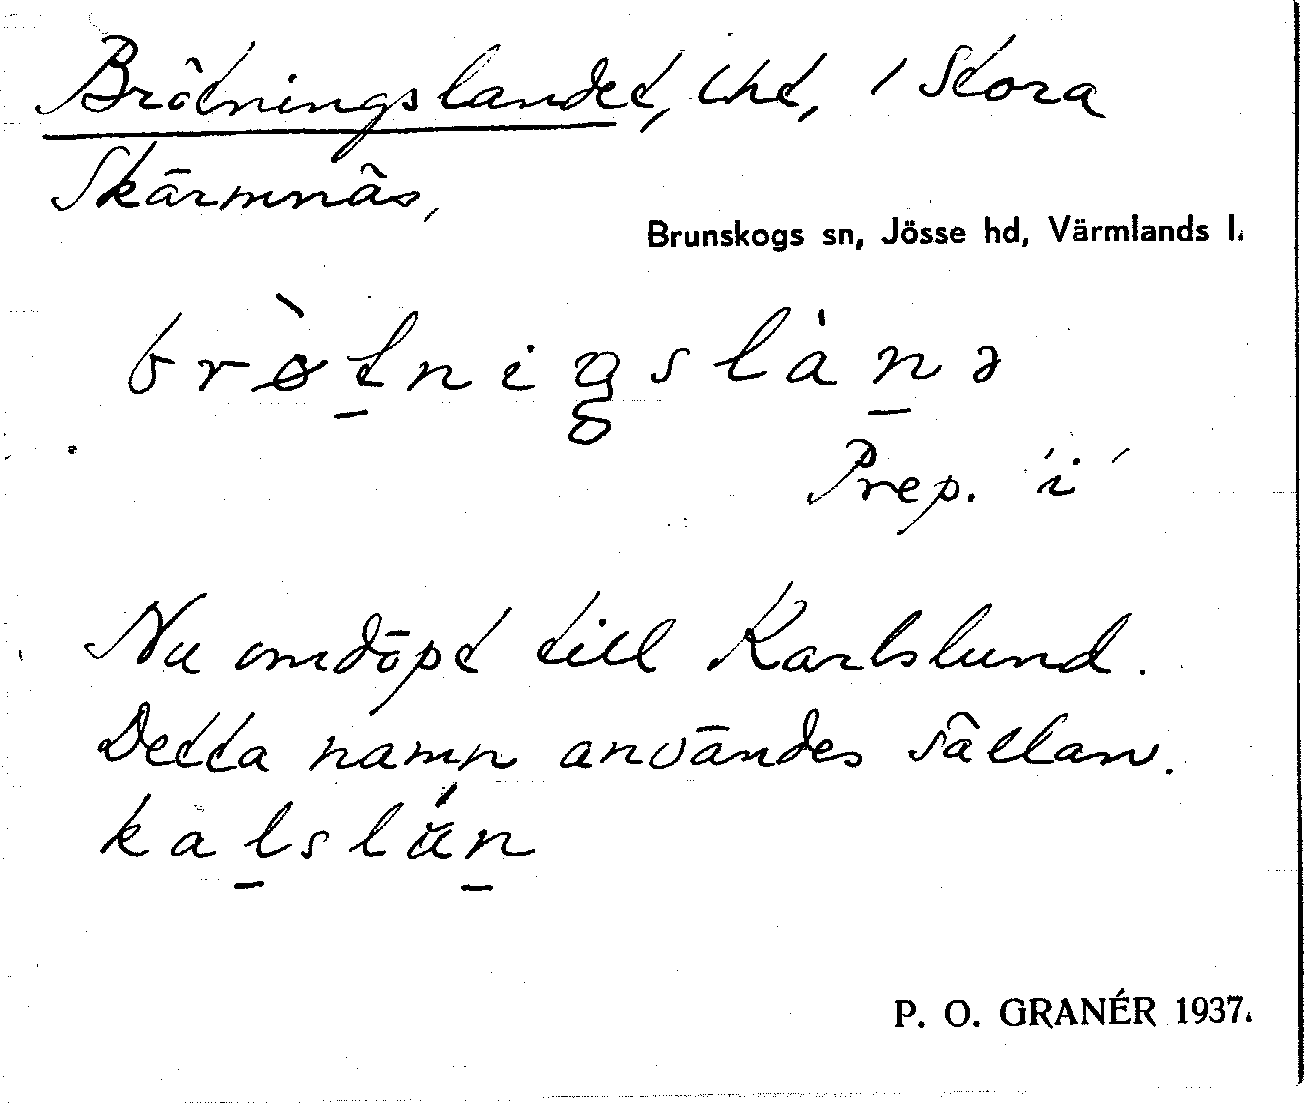 Brötningslandet, lht, i Stora
Skärmnäs,
Brunskogs sn, Jösse hd, Värmlands l.
brø̀t̠nigslàn̠ə
Prep. 'i'
Nu omdöpt till Karlslund.
Detta namn användes sällan.
kal̠slún̠
P. O. GRANÉR 1937.